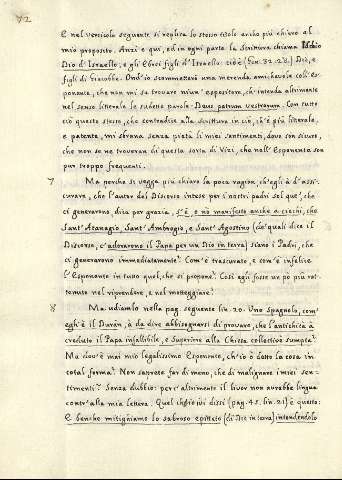 72
E nel versicolo seguente si replica lo stesso titolo anche più chiaro al
mio proposito. Anzi e qui, ed in ogni parte la Scrittura chiama Iddio
Dio d'Israello, e gli Ebrei figli d'Israello: cioè (Gen. 32. 28.) Dio, e
figli di Giacobbe. Ond'io scommetterei una merenda amichevole coll'es-
ponente, che non mi sa trovare niun' espositore, ch'intenda altrimente
nel senso litterale le sudette parole: Deus patrum vestrorum. Con tutto
ciò questo stesso, che contradice alla Scrittura in ciò, ch'è più litterale,
e patente, mi sbrana senza pietà li miei sentimenti, dove son sicuro,
che non se ne trovaran di questa sorta di Vizj, che nell' Esponente son
pur troppo frequenti.
7 Ma perche si vegga più chiara la poca ragion, ch'egli à d'assi-
curare, che l'autor del Discorso intese per i nostri padri sol que', che
ci generarono, diza per grazia, s'è, o nò manifesto anche a ciechi, che
Sant' Atanagio, Sant' Ambrogio, e Sant' Agostino (de' quali dice il
Discorso, ch'adorarono il Papa per un Dio in terra) siano i Padri, che
ci generarono immediatamente? Com'è trascurato, e com'è infelice
l'Esponente in tutto quel, che si propone? Così egli fosse un pò più rat-
tenuto nel riprendere, e nel motteggiare?
8 Ma udiamlo nella pag. seguente lin. 20. Uno spagnolo, com'
egli è il Durán, à da dire abbisognarsi di provare, che l'antichità à
creduto il Papa infallibile, e Superiore alla Chiesa collettivè sumpta?
Ma dov'è mai mio legalissimo Esponente, ch'io ò dotto la cosa in
total forma? Non sareste far di meno, che di malignare i miei sen-
timenti? Senza dubbio: perc' altrimente il livor non avrebbe lingua
contr' alla mia lettera. Quel ch'io ivi dissi (pag. 45. lin. 21) è questo:
E benche mitighiamo lo sabroso epitteto (di Dio in terra) intendendolo